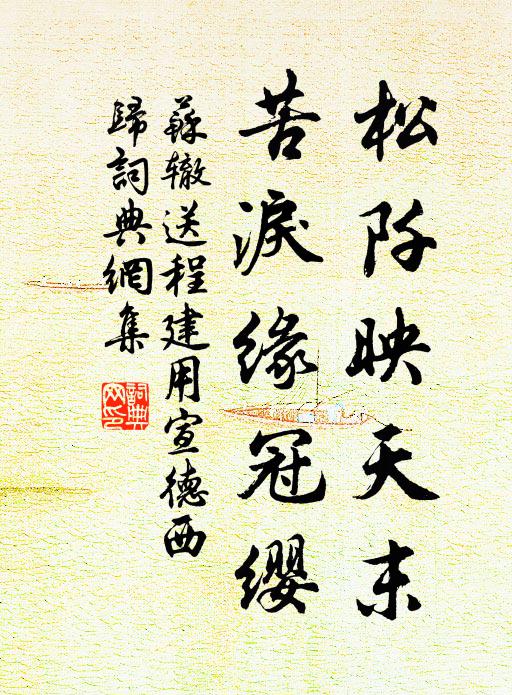 松阡映天末
苦淚緣冠纓
蘇辙送程建用宣德西
歸詞典網集
詞典
网印